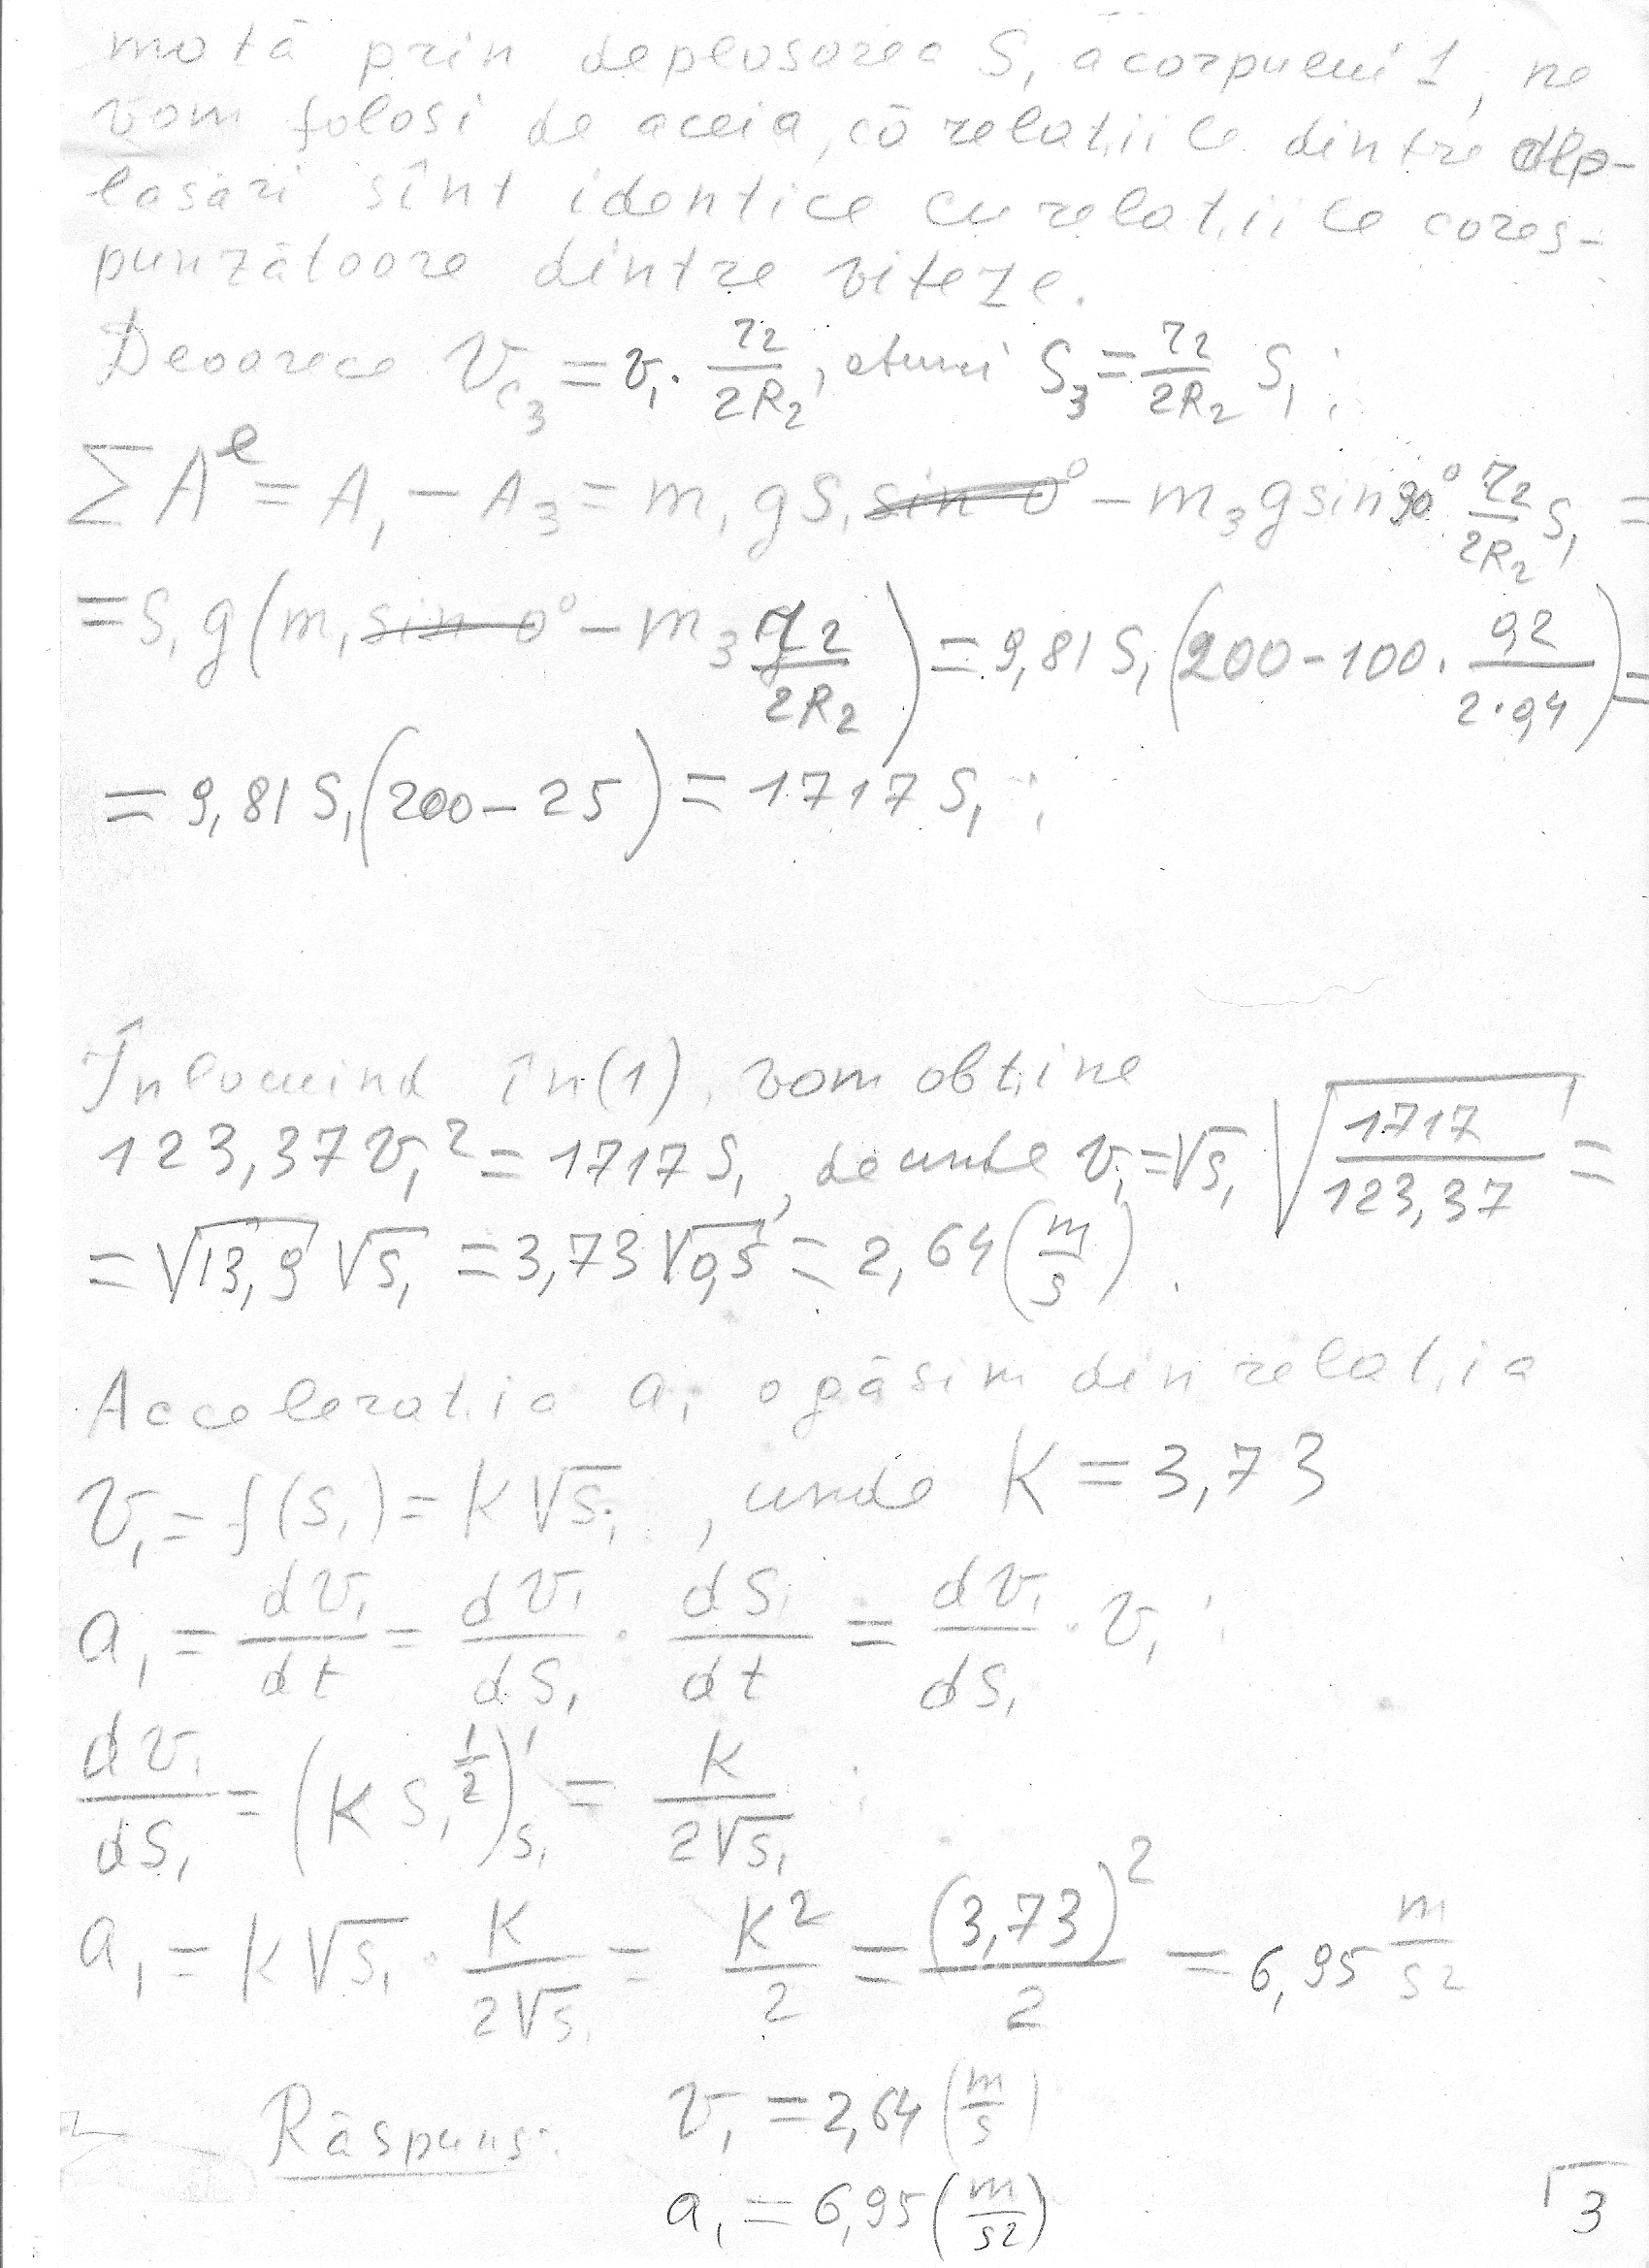 mată prin deplasarea S₁ a corpului 1, ne
vom folosi de aceia, că relațiile dintre dep-
lasări sînt identice cu relațiile cores-
punzătoare dintre viteze.
Deoarece V_C₃ = v₁ · r₂/2R₂, atunci S₃ = r₂/2R₂ S₁ ;
∑Aᵉ = A₁ − A₃ = m₁gS₁ sin 0° − m₃g sin 90° r₂/2R₂ S₁ =
= S₁g(m₁ sin 0° − m₃ r₂/2R₂) = 9,81 S₁(200 − 100 · 0,2/2·0,4) =
= 9,81 S₁(200 − 25) = 1717 S₁ ;
Înlocuind în (1), vom obține
123,37 v₁² = 1717 S₁, de unde v₁ = √S₁ √(1717/123,37) =
= √13,9 √S₁ = 3,73 √0,5 = 2,64 (m/s).
Accelerația a₁ o găsim din relația
v₁ = f(S₁) = K√S₁, unde K = 3,73
a₁ = dv₁/dt = dv₁/dS₁ · dS₁/dt = dv₁/dS₁ · v₁ ;
dv₁/dS₁ = (K S₁^½)'_S₁ = K/2√S₁ ;
a₁ = K√S₁ · K/2√S₁ = K²/2 = (3,73)²/2 = 6,95 m/s²
Răspuns: v₁ = 2,64 (m/s)
a₁ = 6,95 (m/s²)
3